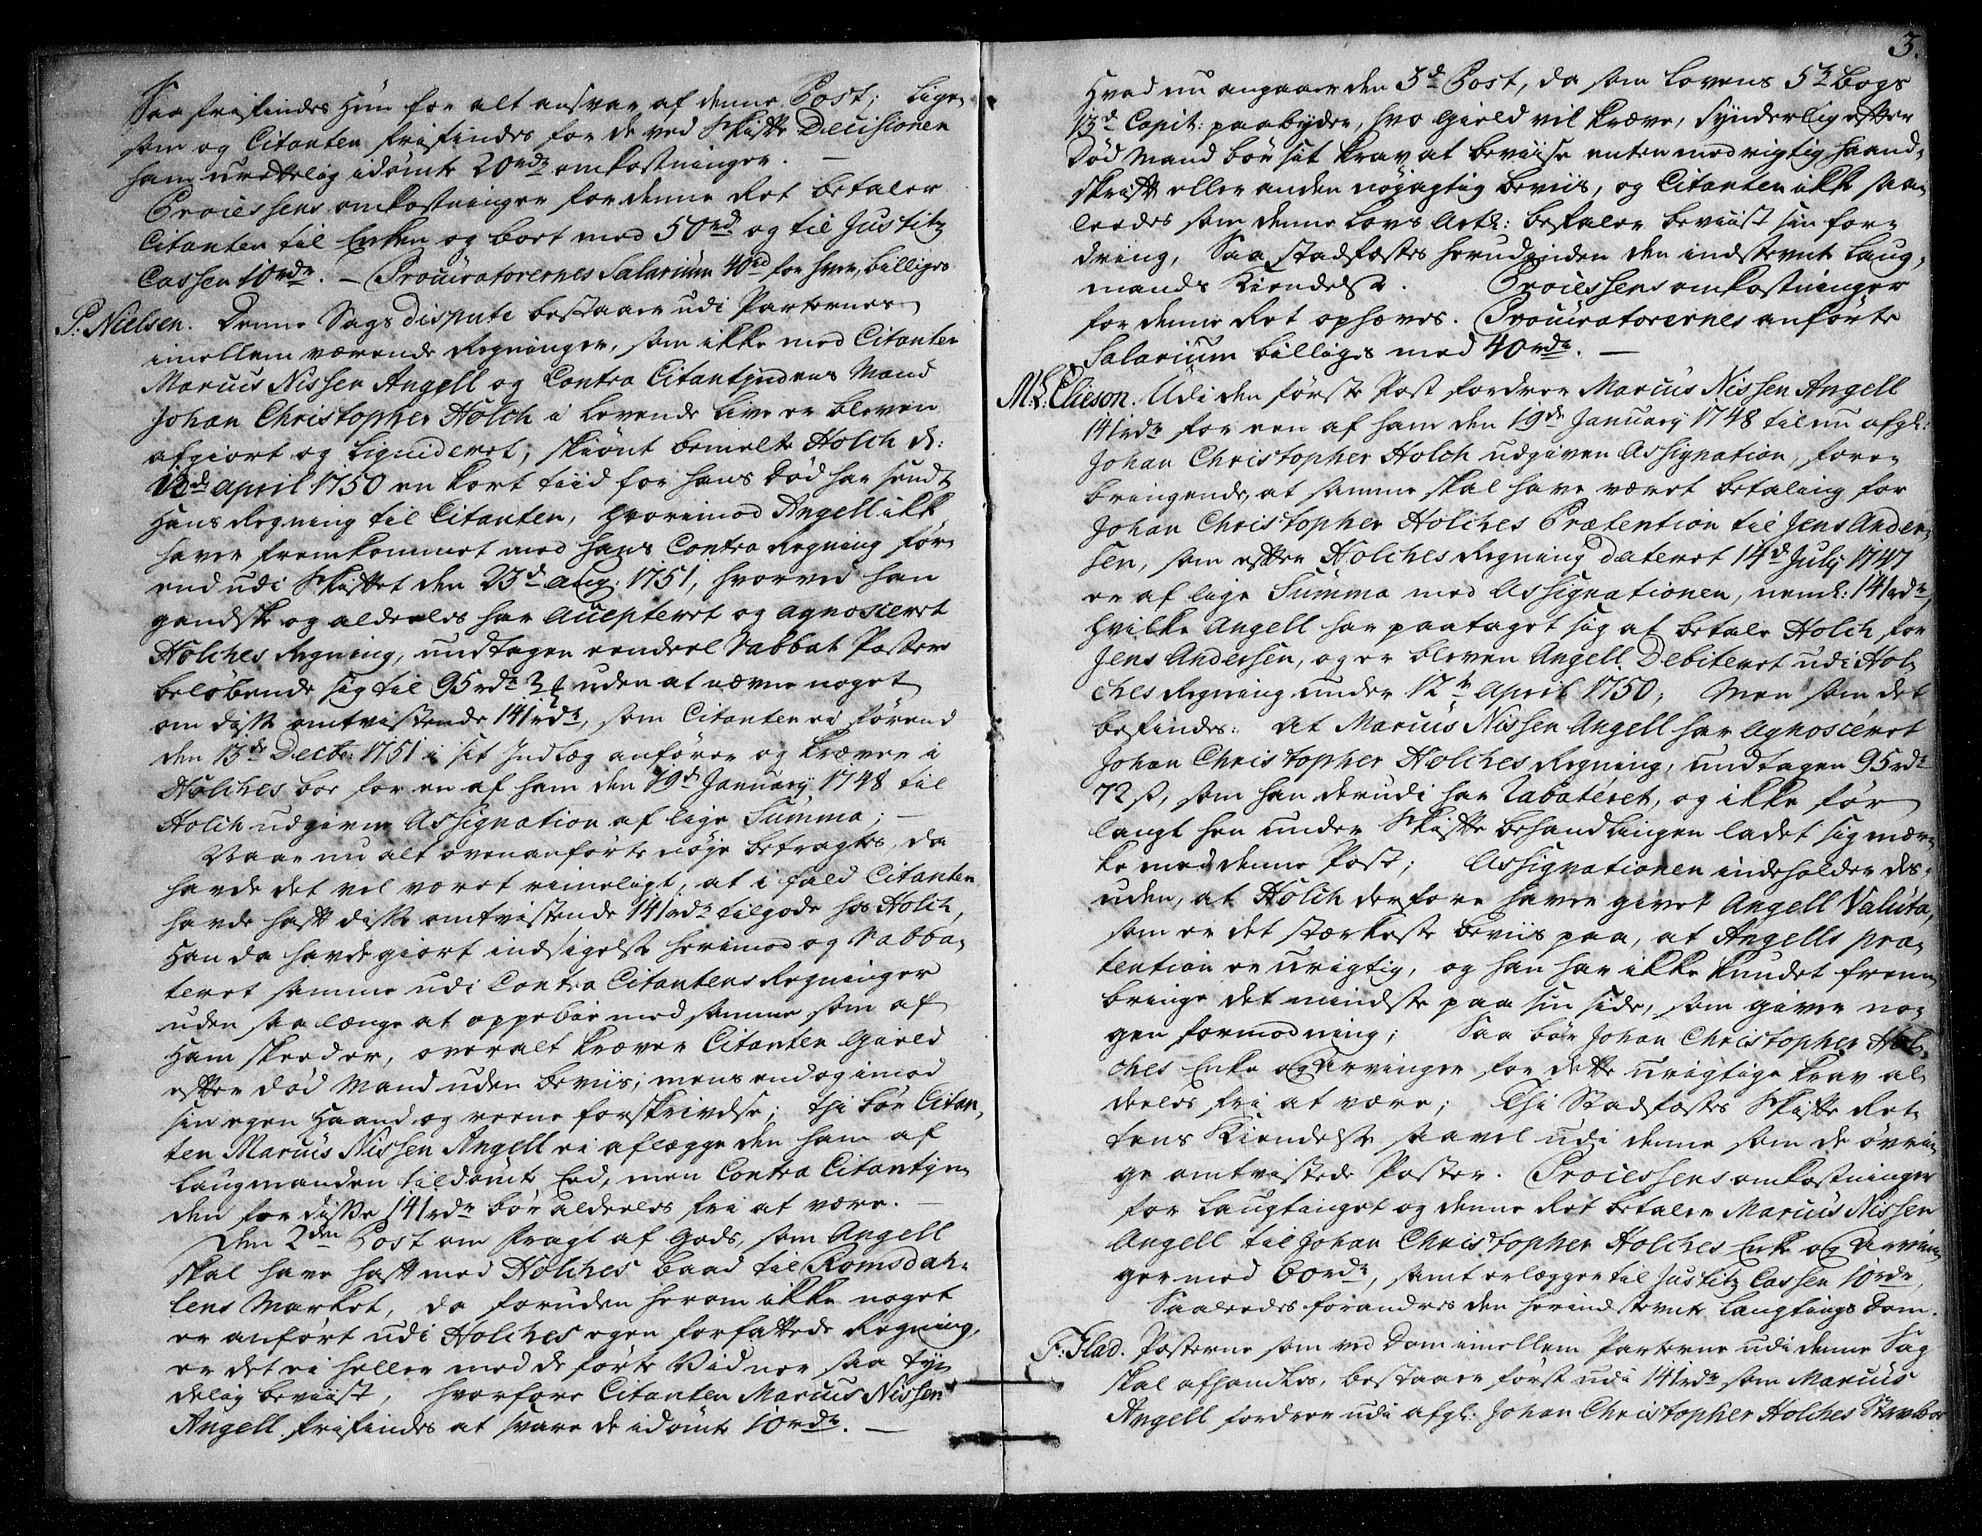 Saa frifindes Hun for alt ansvar af denne Post; lige-
som og Citanten frifindes for de ved Skifte Decisionen
ham urettelig idømte 20 rdr omkostninger. —
Processens omkostninger for denne Ret betaler
Citanten til Enken og boet med 50 rdr og til Justitz
Cassen 10 rdr. — Procuratorernes Salarium 40 rd for hver, billiges
P: Nielsen. Denne Sags dispute bestaaer udi Parternes
imellem værende Regninger, som ikke med Citanten
Marcus Nissen Angell og Contra Citantindens Mand
Johan Christopher Holch i levende Live er bleven
afgiort og liquideret, skiønt bemelte Holch d:
12de April 1750 en kort tiid for hans Død har sendt
Hans Regning til Citanten, hvorimod Angell ikke
haver fremkommet med hans Contra Regning før-
end udi Skiftet den 23d Aug: 1751, hvorved han
gandske og aldeeles har Accepteret og agnosceret
Holches Regning, undtagen eendeel Rabbat Poster
beløbende sig til 95 rdr 3 uden at nævne noget
om disse omtvistende 141 rdr, som Citanten ei førend
den 13de Decbr 1751 i sit Indlæg anfører og kræver i
Holches boe for en af ham den 19d January 1748 til
Holch udgiven Assignation af lige Summa; —
Naar nu alt ovenanførte nøye betragtes, da
havde det vel været rimeligt, at i fald Citanten
havde haft disse omtvistende 141 rdr tilgode hos Holch,
Han da havde giort indsigelse herimod og Rabba-
teret samme udi Contra Citantens Regninger
uden saa længe at oppebie med samme som af
Ham skeeder, overalt kræver Citanten Gield
efter død Mand uden beviis; mens endog imod
sin egen Haand og reene forskrivelse; thi bør Citan-
ten Marcus Nissen Angell ei aflegge den ham af
Laugmanden tildømte Eed, men Contra Citantin-
den for disse 141 rdr bør aldeeles fri at være. —
Den 2den Post om fragt af Gods, som Angell
skal have haft med Holches baad til Romsdah-
lens Market, da foruden herom ikke noget
er anført udi Holches egen forfattede Regning,
er det ei heller med de førte Vidner saa tyde-
delig beviist, hvorfore Citanten Marcus Nissen
Angell frifindes at svare de idømte 10 rdr. —
3.
Hvad nu angaaer den 3d Post, da som Lovens 5te Bogs
13d Capit: paabyder, hvo Gield vil kræve, synderlig efter
død Mand bør sit krav at beviise enten med rigtig haand-
skrift eller anden nøyagtig beviis, og Citanten ikke saa-
leedes som denne Lovs Artl: befaler beviist sin for-
dring, Saa stadfæstes herudinden den indstevnte Laug-
mands Kiendelse. Processens omkostninger
for denne Ret ophæves. Procuratorernes anførte
Salarium billiges med 40 rdr. —
M. L: Elieson. Udi den første Post fordrer Marcus Nissen Angell
141 rdr for een af ham den 19de January 1748 til nu afgl:
Johan Christopher Holch udgiven Assignation, fore-
bringende, at samme skal have været betaling for
Johan Christopher Holches Prætention til Jens Ander-
sen, som efter Holches Regning dateret 14d July 1747
er af lige Summa med Assignationen, neml: 141 rdr,
hvilke Angell har paataget sig at betale Holch for
Jens Andersen, og er bleven Angell Debiteret udi Hol-
ches Regning under 12te April 1750; Men som det
befindes: At Marcus Nissen Angell har Agnosceret
Johan Christopher Holches Regning, undtagen 95 rdr
72 s, som han derudi har Rabateret, og ikke før
langt hen under Skifte behandlingen ladet sig mær-
ke med denne Post; Assignationen indeholder des-
uden, at Holch derfore haver givet Angell Valuta,
som er det stærkeste beviis paa, at Angells præ-
tention er urigtig, og han har ikke kundet frem-
bringe det mindste paa sin side, som giver no-
gen formodning; Saa bør Johan Christopher Hol-
ches Enke og Arvinger for dette urigtige krav al-
deeles fri at være; Thi Stadfæstes Skifte Ret-
tens Kiendelse saavel udi denne som de øvri-
ge omtvistede Poster. Processens omkostninger
for Laugtinget og denne Ret betaler Marcus Nissen
Angell til Johan Christopher Holches Enke og Arvin-
ger med 60 rdr, samt erlægger til Justitz Cassen 10 rdr,
Saaleedes forandres den herindstevnte Laugtings Dom.
F: Flad. Posterne som ved Dom imellem Parterne udi denne Sag
skal afhandles, bestaaer først udi 141 rdr som Marcus
Angell fordrer udi afgl: Johan Christopher Holches Stervboe